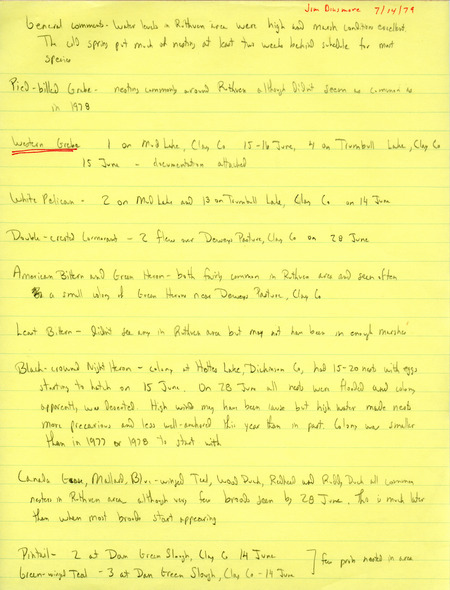 Jim Dinsmore 7/14/79
General comments - Water levels in Ruthven area were high and marsh condition excellent.
The cold spring put much of nesting at least two weeks behind schedule for most
species
Pied-billed Grebe - nesting commonly around Ruthven although didn't seem as common as
in 1978
Western Grebe 1 on Mud Lake, Clay Co 15-16 June, 4 on Trumbull Lake, Clay Co
15 June - documentation attached
White Pelican - 2 on Mud Lake and 13 on Trumbull Lake, Clay Co on 14 June
Double-crested Cormorant - 2 flew over Deweys Pasture, Clay Co on 28 June
American Bittern and Green Heron - both fairly common in Ruthven area and seen often
a small colony of Green Herons near Deweys Pasture, Clay Co
Least Bittern - didn't see any in Ruthven area but may not have been in enough marshes
Black-crowned Night Heron - colony at Hottes Lake, Dickinson Co, had 15-20 nests with eggs
starting to hatch on 15 June. On 28 June all nests were flooded and colony
apparently was deserted. High wind may have been cause but high water made nests
more precarious and less well-anchored this year than in past. Colony was smaller
than in 1977 or 1978 to start with
Canada Goose, Mallard, Blue-winged Teal, Wood Duck, Redhead and Ruddy Duck all common
nesters in Ruthven area although very few broods seen by 28 June. This is much later
than when most broods start appearing
Pintail - 2 at Dan Green Slough, Clay C 14 June
Green-winged Teal - 3 at Dan Green Slough, Clay Co - 14 June
few prob nested in area